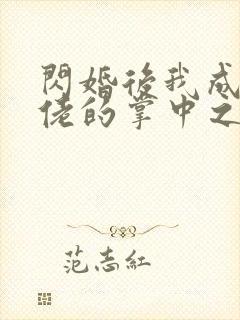 閃婚後我成
佬的掌中之
范志紅